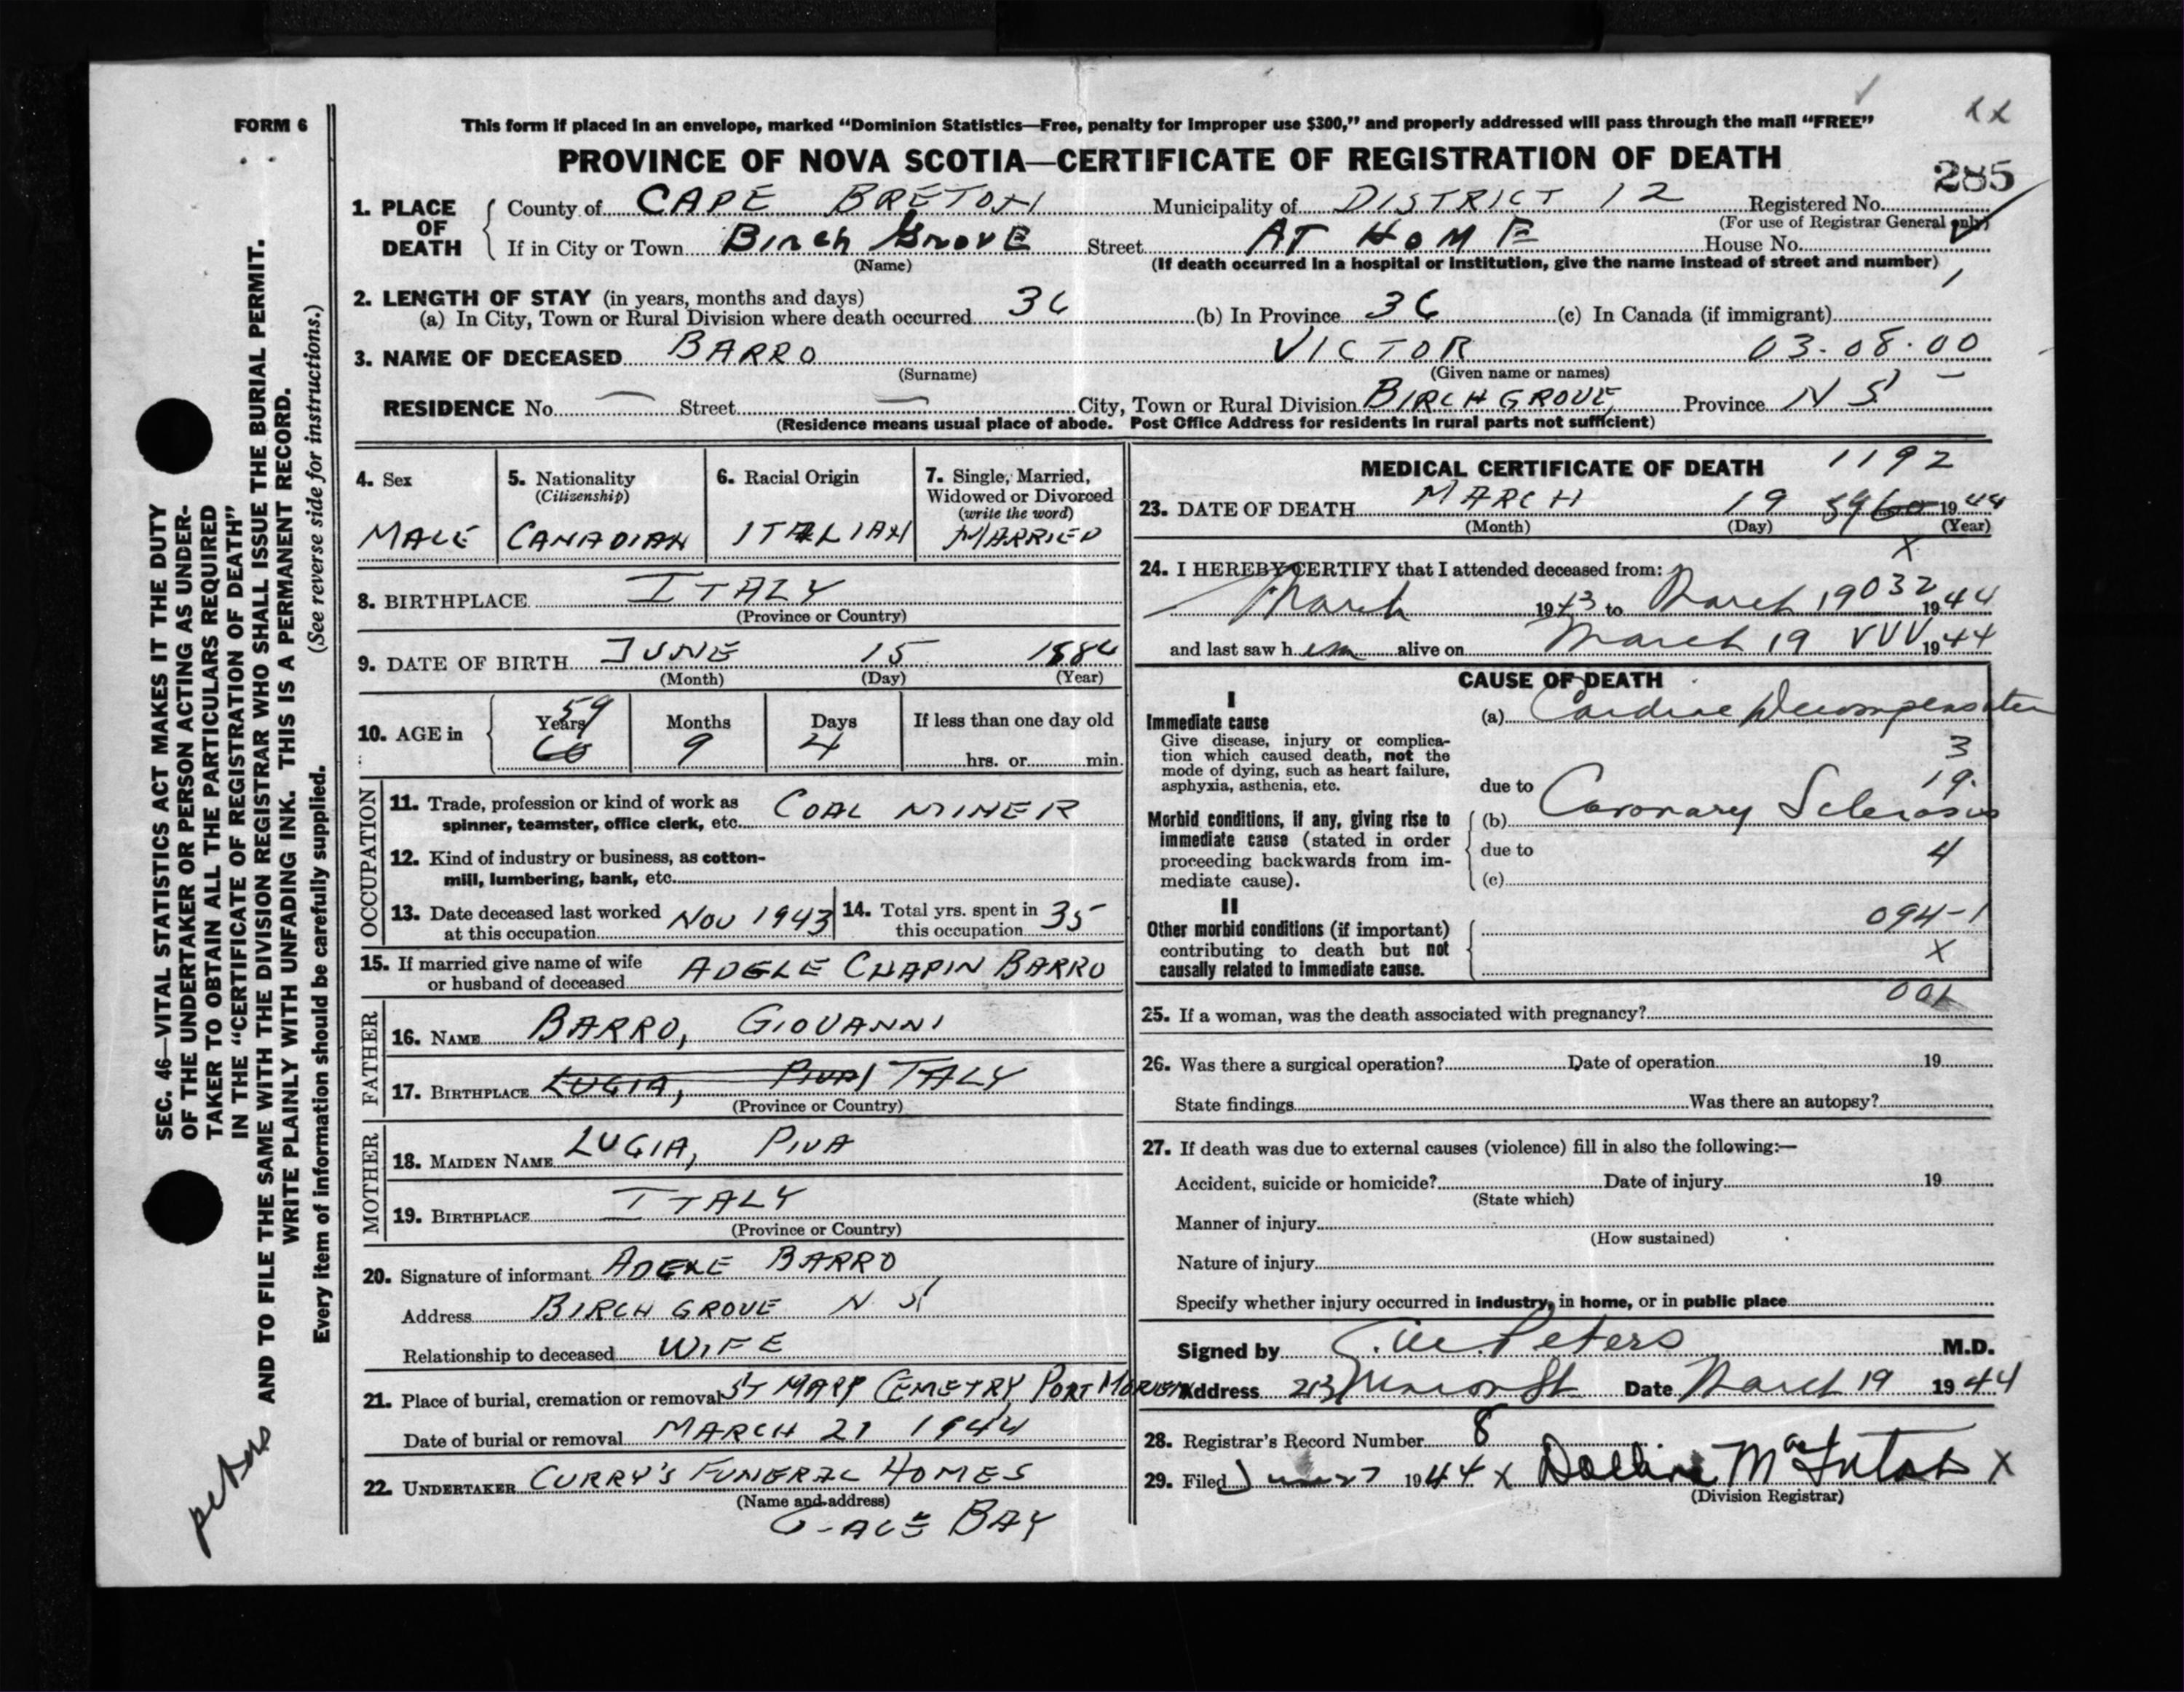 FORM 6
This form if placed in an envelope, marked “Dominion Statistics—Free, penalty for improper use $300,” and properly addressed will pass through the mail “FREE”
XX
PROVINCE OF NOVA SCOTIA—CERTIFICATE OF REGISTRATION OF DEATH
285
1. PLACE OF DEATH
County of CAPE BRETON Municipality of DISTRICT 12 Registered No.
(For use of Registrar General only)
If in City or Town Birch Grove Street AT HOME House No.
(Name) (If death occurred in a hospital or institution, give the name instead of street and number)
1
2. LENGTH OF STAY (in years, months and days)
(a) In City, Town or Rural Division where death occurred 36 (b) In Province 36 (c) In Canada (if immigrant)
3. NAME OF DECEASED BARRO VICTOR 03-08-00
(Surname) (Given name or names)
RESIDENCE No. — Street — City, Town or Rural Division BIRCH GROVE, Province N S
(Residence means usual place of abode. Post Office Address for residents in rural parts not sufficient)
4. Sex
MALE
5. Nationality
(Citizenship)
CANADIAN
6. Racial Origin
ITALIAN
7. Single, Married,
Widowed or Divorced
(write the word)
MARRIED
8. BIRTHPLACE ITALY
(Province or Country)
9. DATE OF BIRTH JUNE 15 1884
(Month) (Day) (Year)
10. AGE in
Years 59
60
Months
9
Days
4
If less than one day old
hrs. or min.
OCCUPATION
11. Trade, profession or kind of work as COAL MINER
spinner, teamster, office clerk, etc.
12. Kind of industry or business, as cotton-
mill, lumbering, bank, etc.
13. Date deceased last worked NOV 1943
at this occupation
14. Total yrs. spent in 35
this occupation
15. If married give name of wife ADELE CHAPIN BARRO
or husband of deceased
FATHER
16. NAME BARRO, GIOVANNI
17. BIRTHPLACE LUGIA, PIVA ITALY
(Province or Country)
MOTHER
18. MAIDEN NAME LUGIA, PIVA
19. BIRTHPLACE ITALY
(Province or Country)
20. Signature of informant ADELE BARRO
Address BIRCH GROVE N S
Relationship to deceased WIFE
21. Place of burial, cremation or removal ST MARY CEMETRY, PORT MORIEN
Date of burial or removal MARCH 21 1944
22. UNDERTAKER CURRY'S FUNERAL HOMES
(Name and address)
GLACE BAY
MEDICAL CERTIFICATE OF DEATH 1192
23. DATE OF DEATH MARCH 19 59 60 1944
(Month) (Day) (Year)
X
24. I HEREBY CERTIFY that I attended deceased from:
March 1943 to March 19 032 1944
and last saw him alive on March 19 VVV 1944
CAUSE OF DEATH
I
Immediate cause
Give disease, injury or complica-
tion which caused death, not the
mode of dying, such as heart failure,
asphyxia, asthenia, etc.
(a) Cardiac Decompensation
3
19.
due to
Morbid conditions, if any, giving rise to
immediate cause (stated in order
proceeding backwards from im-
mediate cause).
(b) Coronary Sclerosis
due to 4
(c)
II
Other morbid conditions (if important)
contributing to death but not
causally related to immediate cause.
094-1
X
001
25. If a woman, was the death associated with pregnancy?
26. Was there a surgical operation? Date of operation 19
State findings Was there an autopsy?
27. If death was due to external causes (violence) fill in also the following:—
Accident, suicide or homicide? Date of injury 19
(State which)
Manner of injury
(How sustained)
Nature of injury
Specify whether injury occurred in industry, in home, or in public place
Signed by Peters M.D.
Address 213 Date March 19 1944
28. Registrar's Record Number 8
29. Filed 1944 X X
(Division Registrar)
SEC. 46—VITAL STATISTICS ACT MAKES IT THE DUTY
OF THE UNDERTAKER OR PERSON ACTING AS UNDER-
TAKER TO OBTAIN ALL THE PARTICULARS REQUIRED
IN THE “CERTIFICATE OF REGISTRATION OF DEATH”
AND TO FILE THE SAME WITH THE DIVISION REGISTRAR WHO SHALL ISSUE THE BURIAL PERMIT.
WRITE PLAINLY WITH UNFADING INK. THIS IS A PERMANENT RECORD.
Every item of information should be carefully supplied. (See reverse side for instructions.)
peters